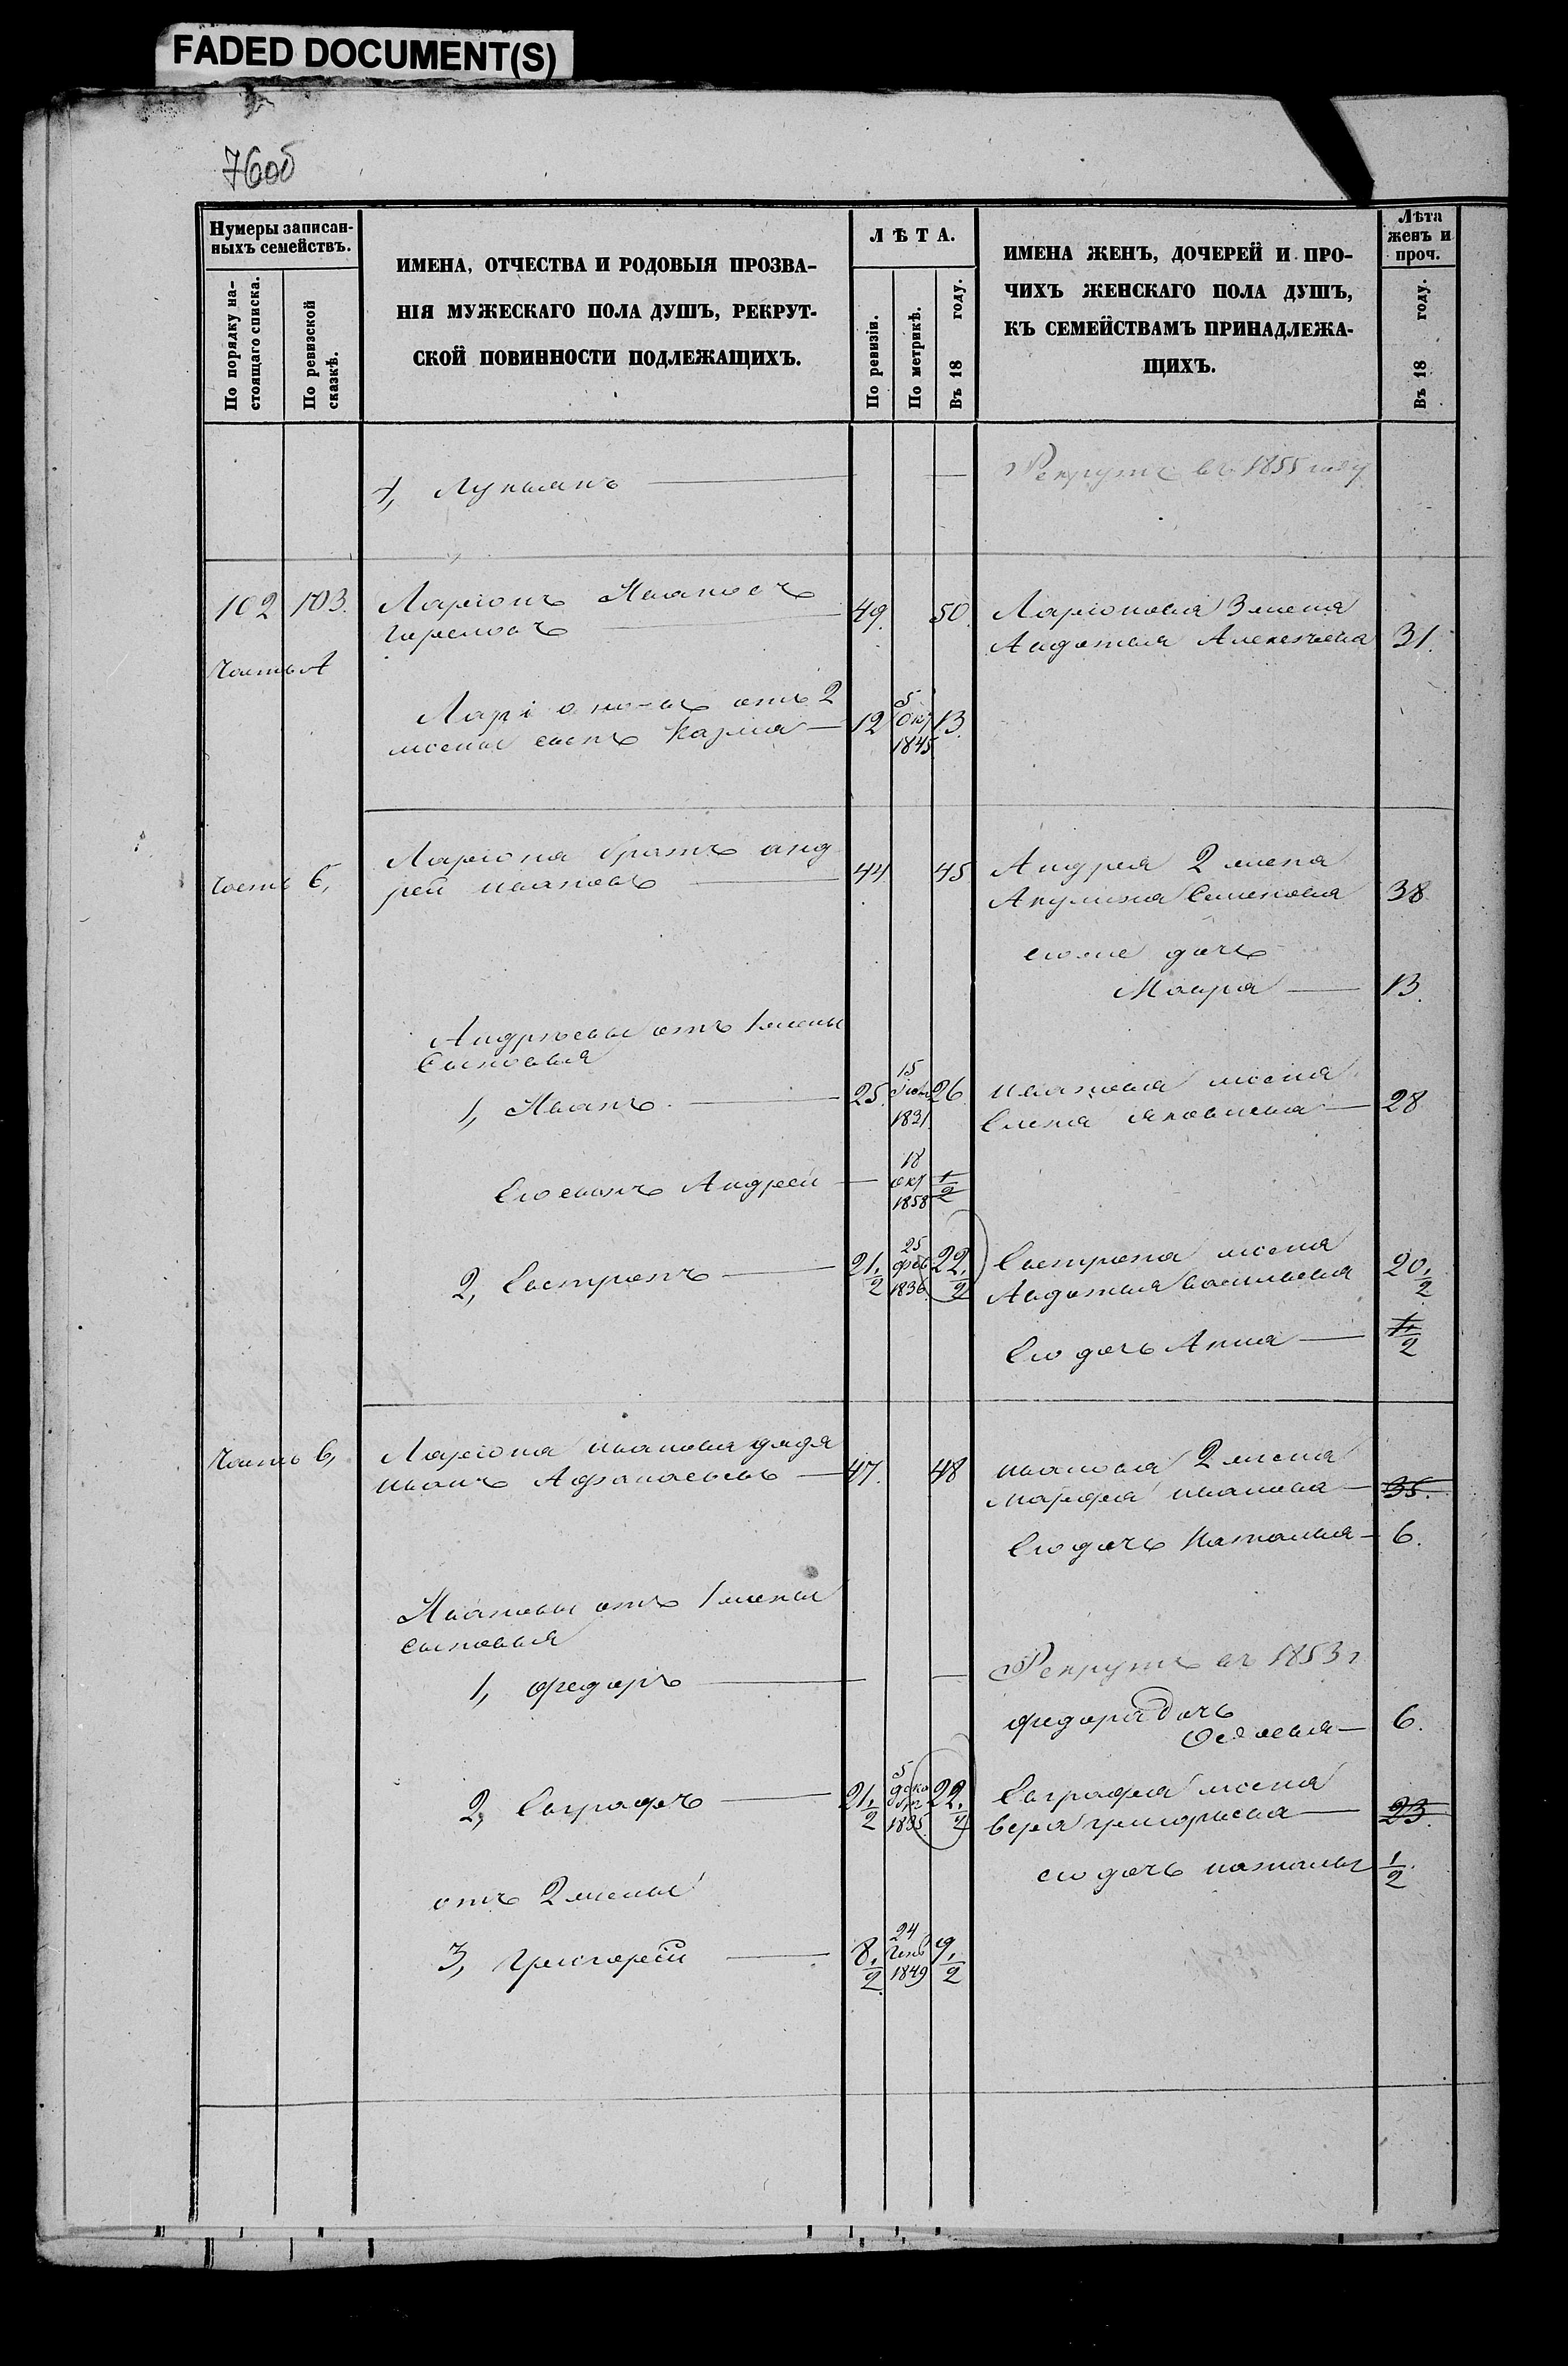 FADED DOCUMENT(S)
76об
Нумеры записан-
ныхъ семействъ.
По порядку на-
стоящаго списка.
По ревизской
сказкѣ.
ИМЕНА, ОТЧЕСТВА И РОДОВЫЯ ПРОЗВА-
НІЯ МУЖЕСКАГО ПОЛА ДУШЪ, РЕКРУТ-
СКОЙ ПОВИННОСТИ ПОДЛЕЖАЩИХЪ.
ЛѢТА.
По ревизіи.
По метрикѣ.
Въ 18 году.
ИМЕНА ЖЕНЪ, ДОЧЕРЕЙ И ПРО-
ЧИХЪ ЖЕНСКАГО ПОЛА ДУШЪ,
КЪ СЕМЕЙСТВАМЪ ПРИНАДЛЕЖА-
ЩИХЪ.
Лѣта
женъ и
проч.
Въ 18 году.
Рекрутъ въ 1855 году
Лукьянъ
102 103. Ларіонъ Ивановъ 49. 50. Ларіонова 3 жена
Гореловъ Авдотья Алексѣева 31.
Часть А
Ларіоновъ отъ 2 5
жены сынъ Казма 12 Окт 13.
1845.
Ларіона братъ анд
Часть б, рей ивановъ 44. 45 Андрея 2 жена
Акулина Семенова 38
его же дочь
Мавра 13.
Андрѣевы отъ 1 жены
Сыновья
1, Иванъ 25. 15 1831. 26. иванова жена
Елена яковлева 28
Его сынъ Андрей 18 окт 1858 1/2
2, Евстратъ 21 1/2 25 фев 1836. 22 1/2 Евстрата жена
Авдотья васильева 20 1/2
Его дочь Анна 1/2
Часть в, Ларіона иванова дядя
иванъ Афанасьевъ 47. 48 иванова 2 жена
марфа иванова 35.
Его дочь наталья 6.
Ивановы отъ 1 жены
сыновья
1, федоръ Рекрутъ въ 1853 г
федора дочь
6.
2, Евграфъ 21 1/2 5 декабр 1835 22 1/2 Евграфа жена
вера григорьева 23.
его дочь наталья 1/2
отъ 2 жены
3, Григорей 8 1/2 24 Генв 1849 9 1/2